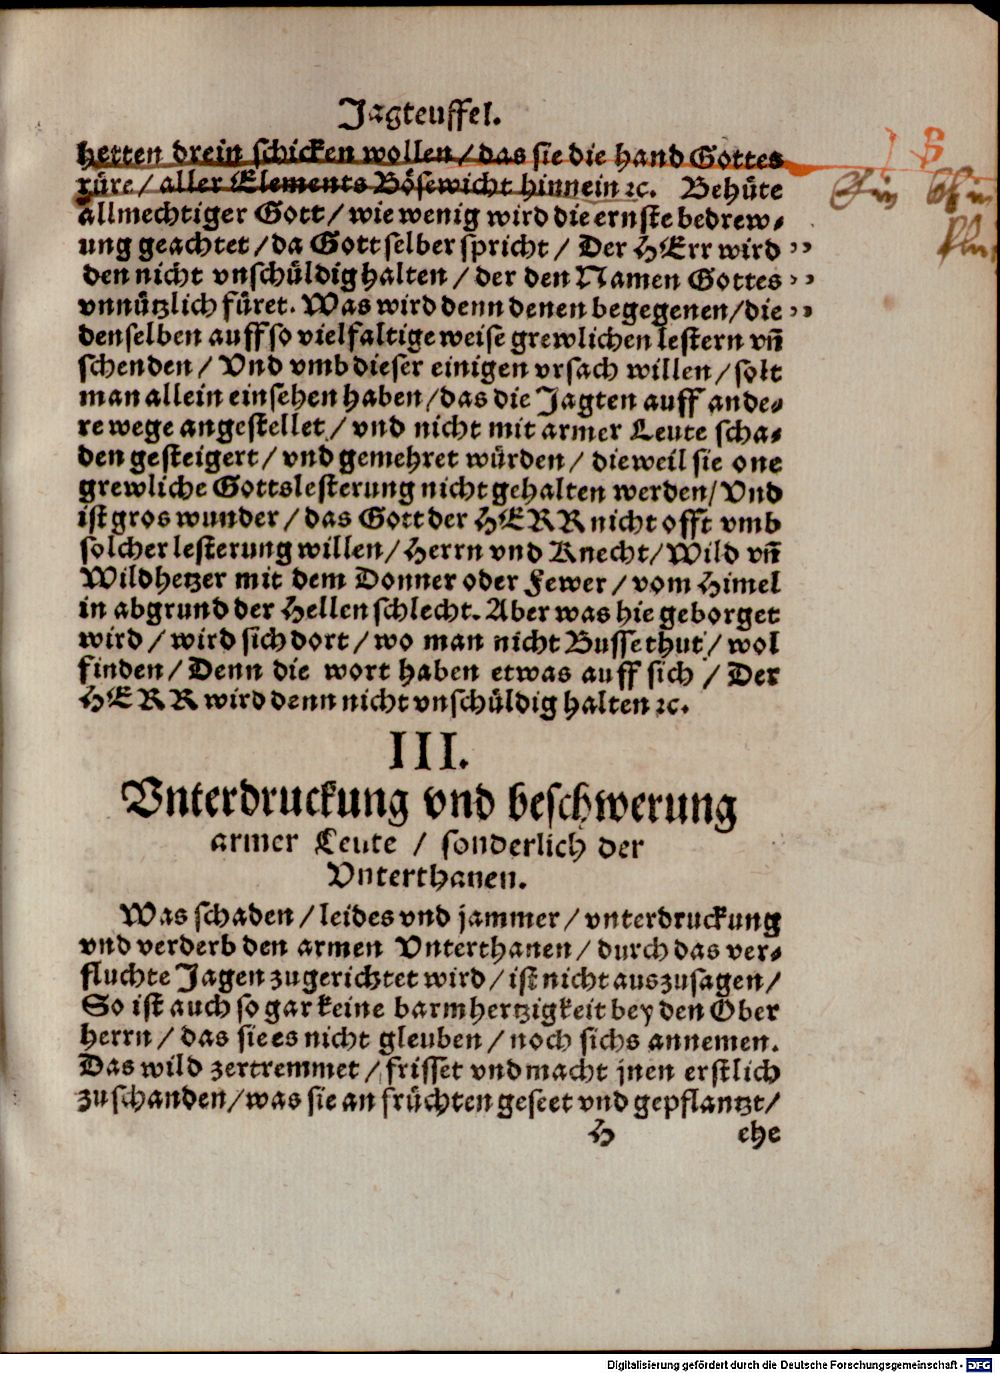 Jagteuffel.
hetten drein schicken wollen / das sie die hand Gottes
rüre / aller Elements Bösewicht hinnein ꝛc. Behüte
allmechtiger Gott / wie wenig wird die ernste bedrew⸗
ung geachtet / da Gott selber spricht / Der HErr wird ››
den nicht vnschüldig halten / der den Namen Gottes ››
vnnützlich füret. Was wird denn denen begegenen / die ››
denselben auff so vielfaltige weise grewlichen lestern vñ
schenden / Vnd vmb dieser einigen vrsach willen / solt
man allein einsehen haben / das die Jagten auff ande⸗
re wege angestellet / vnd nicht mit armer Leute scha⸗
den gesteigert / vnd gemehret würden / dieweil sie one
grewliche Gottslesterung nicht gehalten werden / Vnd
ist gros wunder / das Gott der HERR nicht offt vmb
solcher lesterung willen / Herrn vnd Knecht / Wild vñ
Wildhetzer mit dem Donner oder Fewer / vom Himel
in abgrund der Hellen schlecht. Aber was hie geborget
wird / wird sich dort / wo man nicht Busse thut / wol
finden / Denn die wort haben etwas auff sich / Der
HERR wird denn nicht vnschüldig halten ꝛc.
III.
Vnterdruckung vnd beschwerung
armer Leute / sonderlich der
Vnterthanen.
Was schaden / leides vnd jammer / vnterdruckung
vnd verderb den armen Vnterthanen / durch das ver⸗
fluchte Jagen zugerichtet wird / ist nicht auszusagen /
So ist auch so gar keine barmhertzigkeit bey den Ober
herrn / das sie es nicht gleuben / noch sichs annemen.
Das wild zertremmet / frisset vnd macht jnen erstlich
zuschanden / was sie an früchten geseet vnd gepflantzt /
H ehe
Digitalisierung gefördert durch die Deutsche Forschungsgemeinschaft - DFG